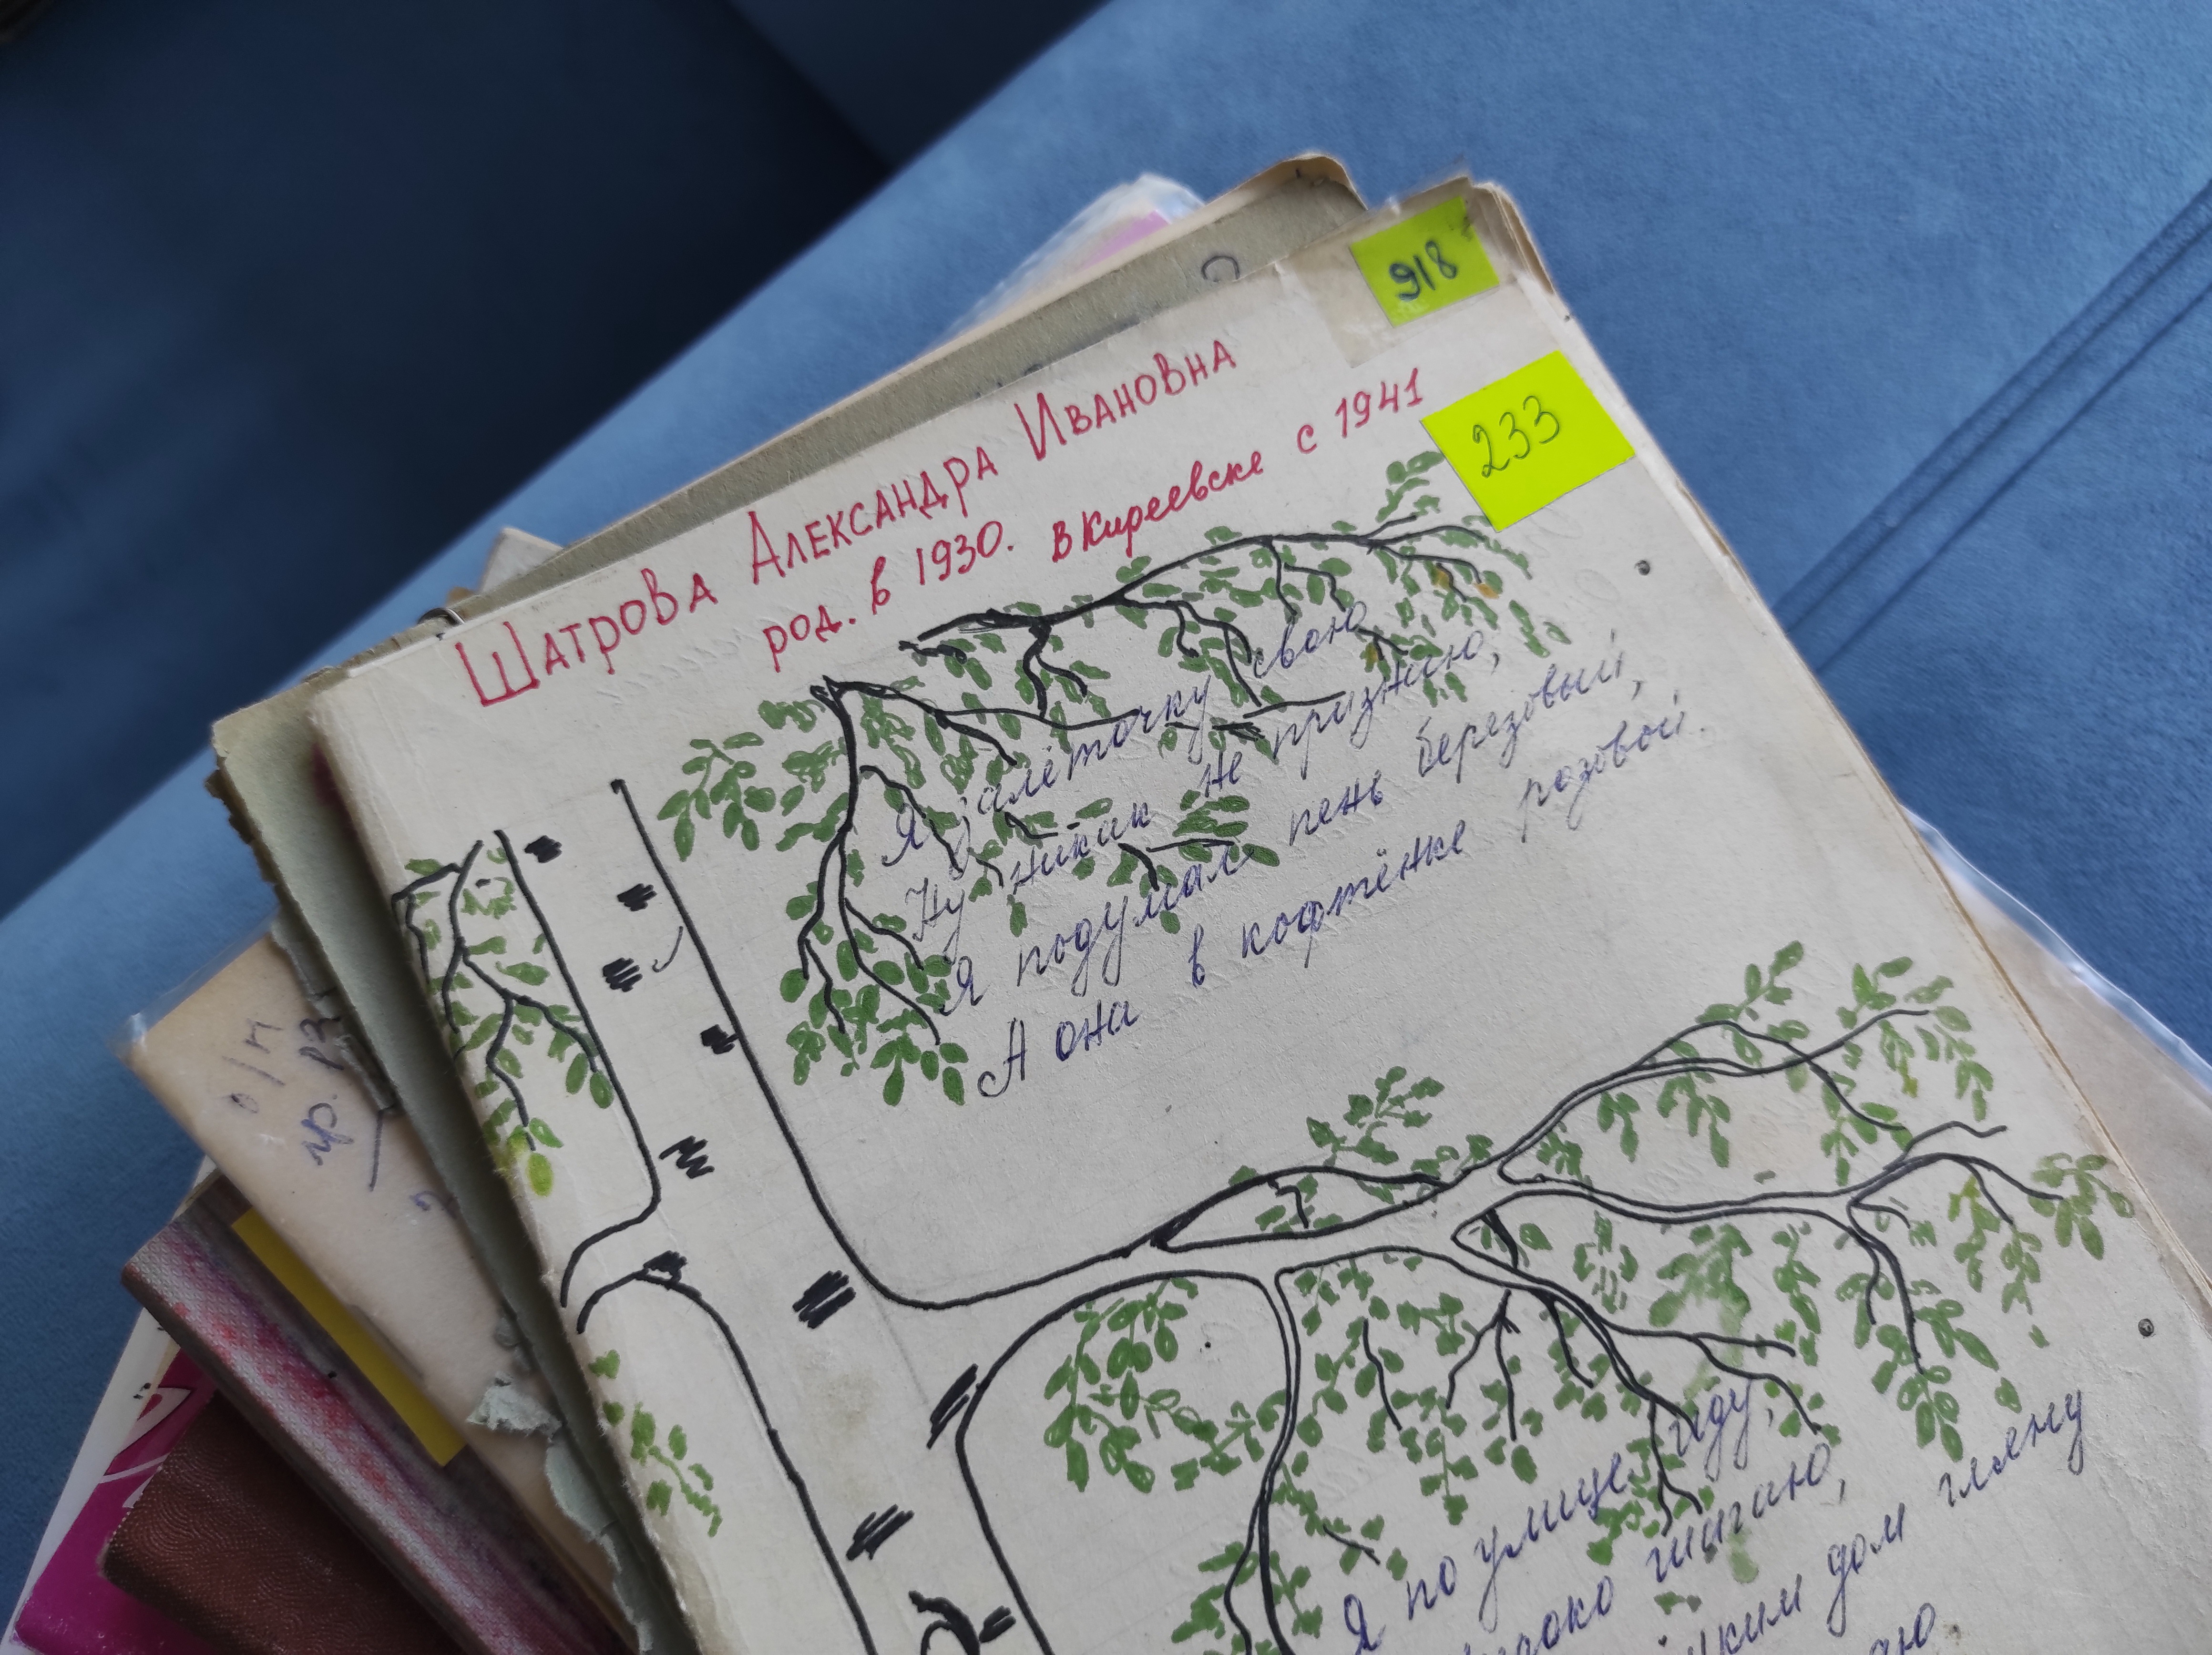 918
233
Шатрова Александра Ивановна
род. в 1930. в Киреевске с 1941
Я залёточку свою
Ну никак не призною,
Я подумал пень березовый,
А она в кофтёнке розовой.
Я по улице иду,
шагаю,
дом гляну
о/п